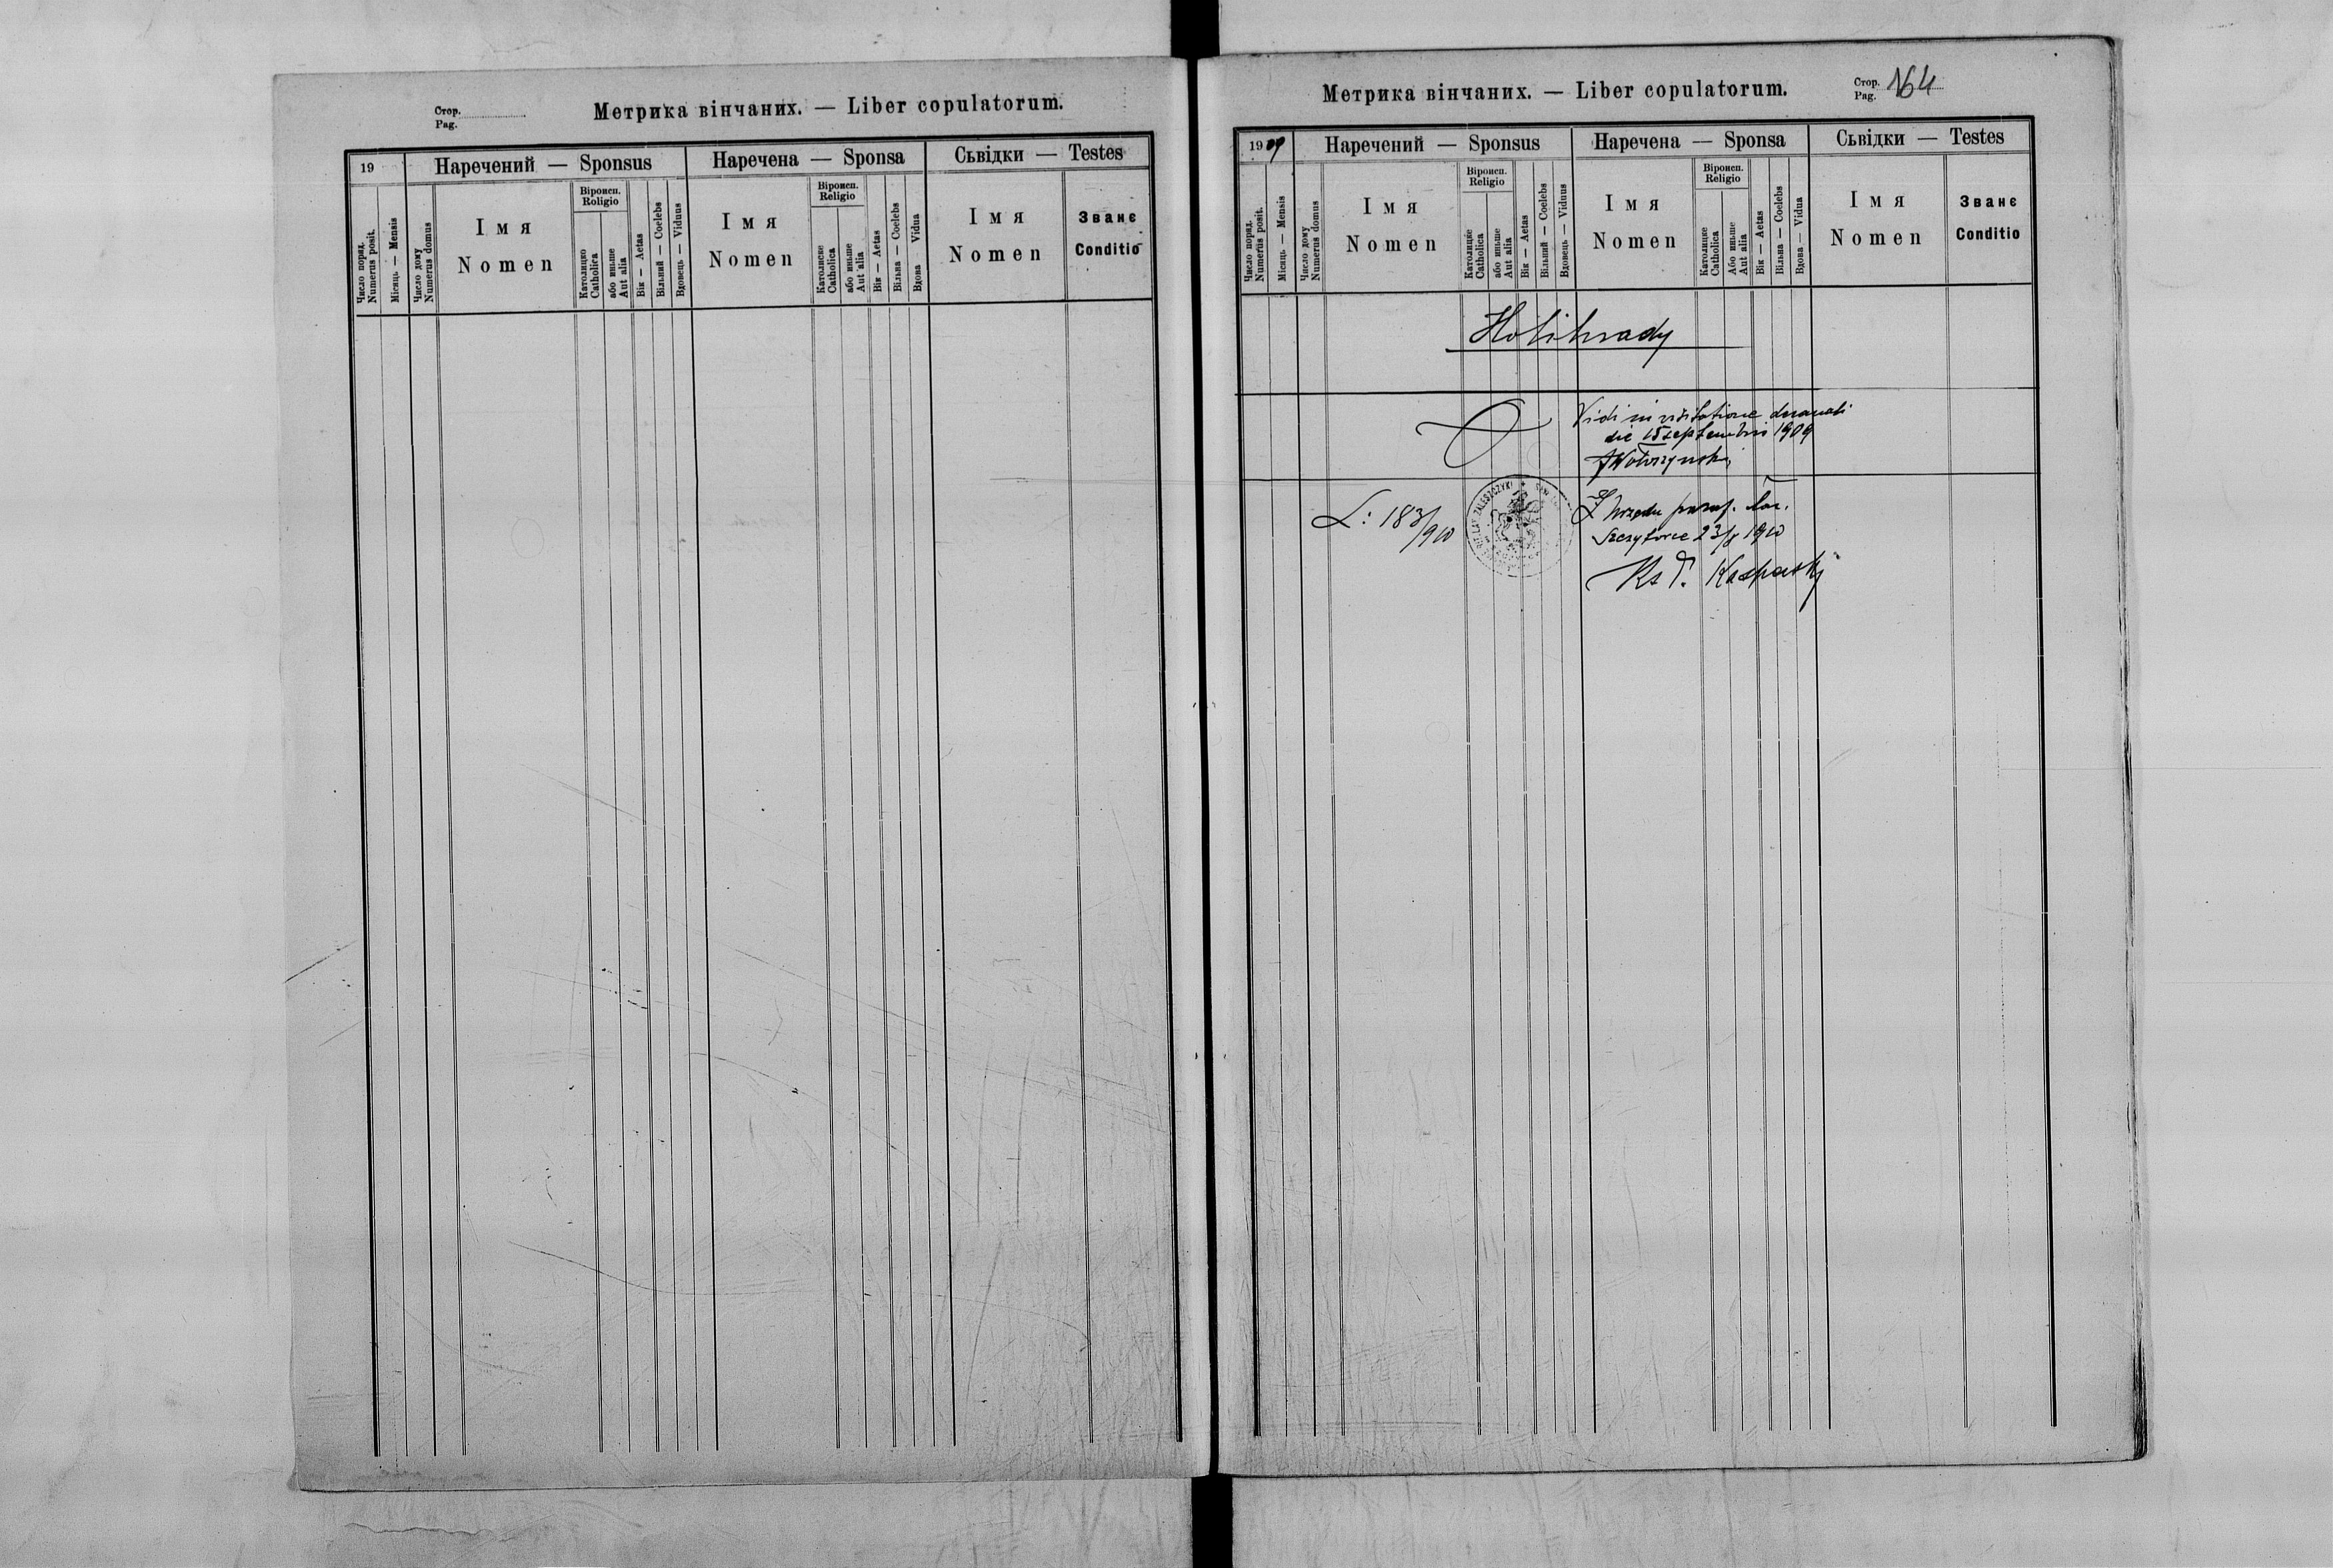 Стор.
Pag.
Метрика вінчаних. — Liber copulatorum.
19
Наречений — Sponsus
Наречена — Sponsa
Сьвідки — Testes
Число поряд.
Numerus posit.
Місяць — Mensis
Число дому
Numerus domus
Імя
Nomen
Віроисп.
Religio
Католицке
Catholica
або иньше
Aut alia
Вік — Aetas
Вільний — Coelebs
Вдовець — Viduus
Імя
Nomen
Віроисп.
Religio
Католицке
Catholica
або иньше
Aut alia
Вік — Aetas
Вільна — Coelebs
Вдова — Vidua
Імя
Nomen
Званє
Conditio
Метрика вінчаних. — Liber copulatorum.
Стор.
Pag. 164
1909
Наречений — Sponsus
Наречена — Sponsa
Сьвідки — Testes
Число поряд.
Numerus posit.
Місяць — Mensis
Число дому
Numerus domus
Імя
Nomen
Віроисп.
Religio
Католицке
Catholica
або иньше
Aut alia
Вік — Aetas
Вільний — Coelebs
Вдовець — Viduus
Імя
Nomen
Віроисп.
Religio
Католицке
Catholica
Або иньше
Aut alia
Вік — Aetas
Вільна — Coelebs
Вдова — Vidua
Імя
Nomen
Званє
Conditio
Holihrady
Vidi in visitatione decanali
die 15 septembris 1909
L: 183/910
ZALESZCZYKI
Z Urzędu paraf. łac.
Szczytowce 23/X 1910
Ks T.